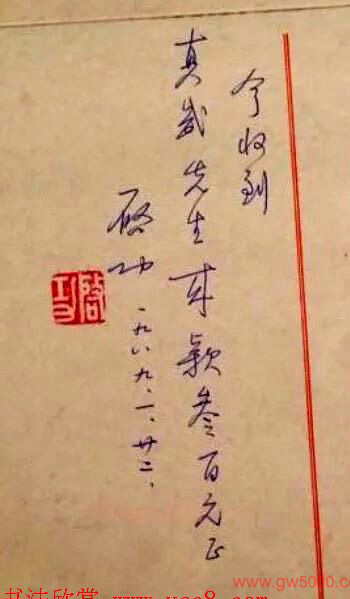 今收到
真先生款叁百元正
启功
一九八九、一、廿二、
启功
www.gw5000.com
书法欣赏 www.yac8.com